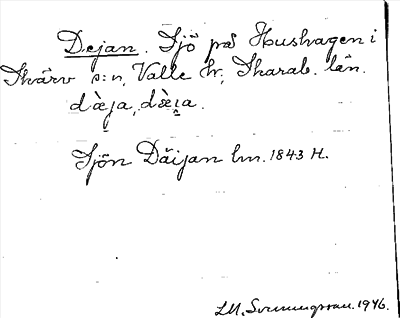 Dejan. Sjö på Hushagen i
Skärv s:n, Valle hr, Skarab. län.
dæ̀i̯a, dæ̀i̯a.
Sjön Däijan lm. 1843 H.
1946.